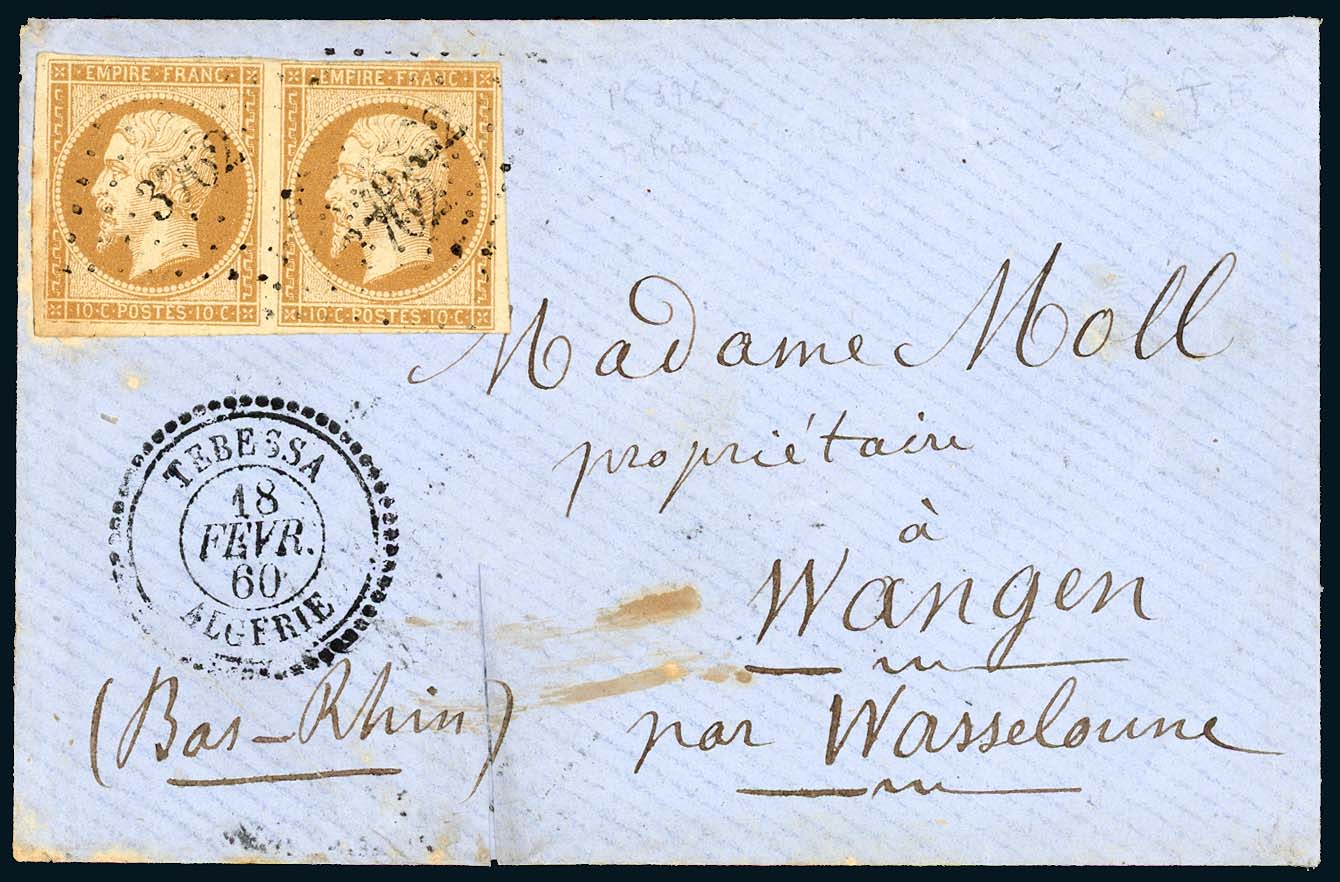 EMPIRE FRANC. EMPIRE FRANC.
3762
10·C·POSTES·10·C· 10·C·POSTES·10·C·
TEBESSA
18
FÉVR.
60
ALGERIE
Madame Moll
propriétaire
à
Wangen
par Wasselonne
(Bas-Rhin)